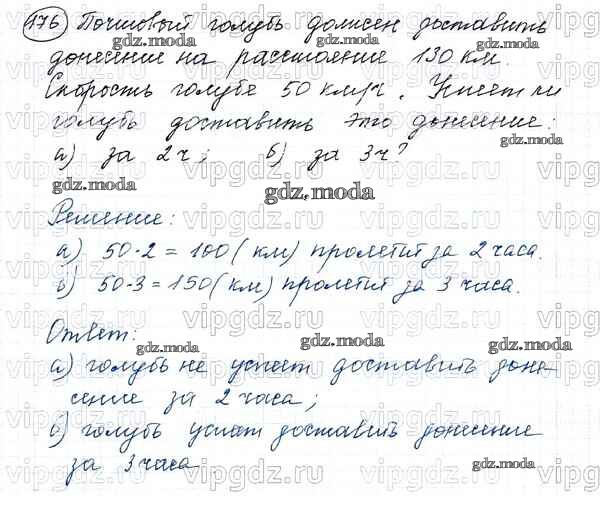 476 Почтовый голубь должен доставить
донесение на расстояние 130 км.
Скорость голубя 50 км/ч. Успеет ли
голубь доставить это донесение:
а) за 2 ч; б) за 3 ч?
Решение:
а) 50·2 = 100 (км) пролетит за 2 часа.
б) 50·3 = 150 (км) пролетит за 3 часа.
Ответ:
а) голубь не успеет доставить доне
сение за 2 часа;
б) голубь успеет доставить донесение
за 3 часа
gdz.moda
vipgdz.ru